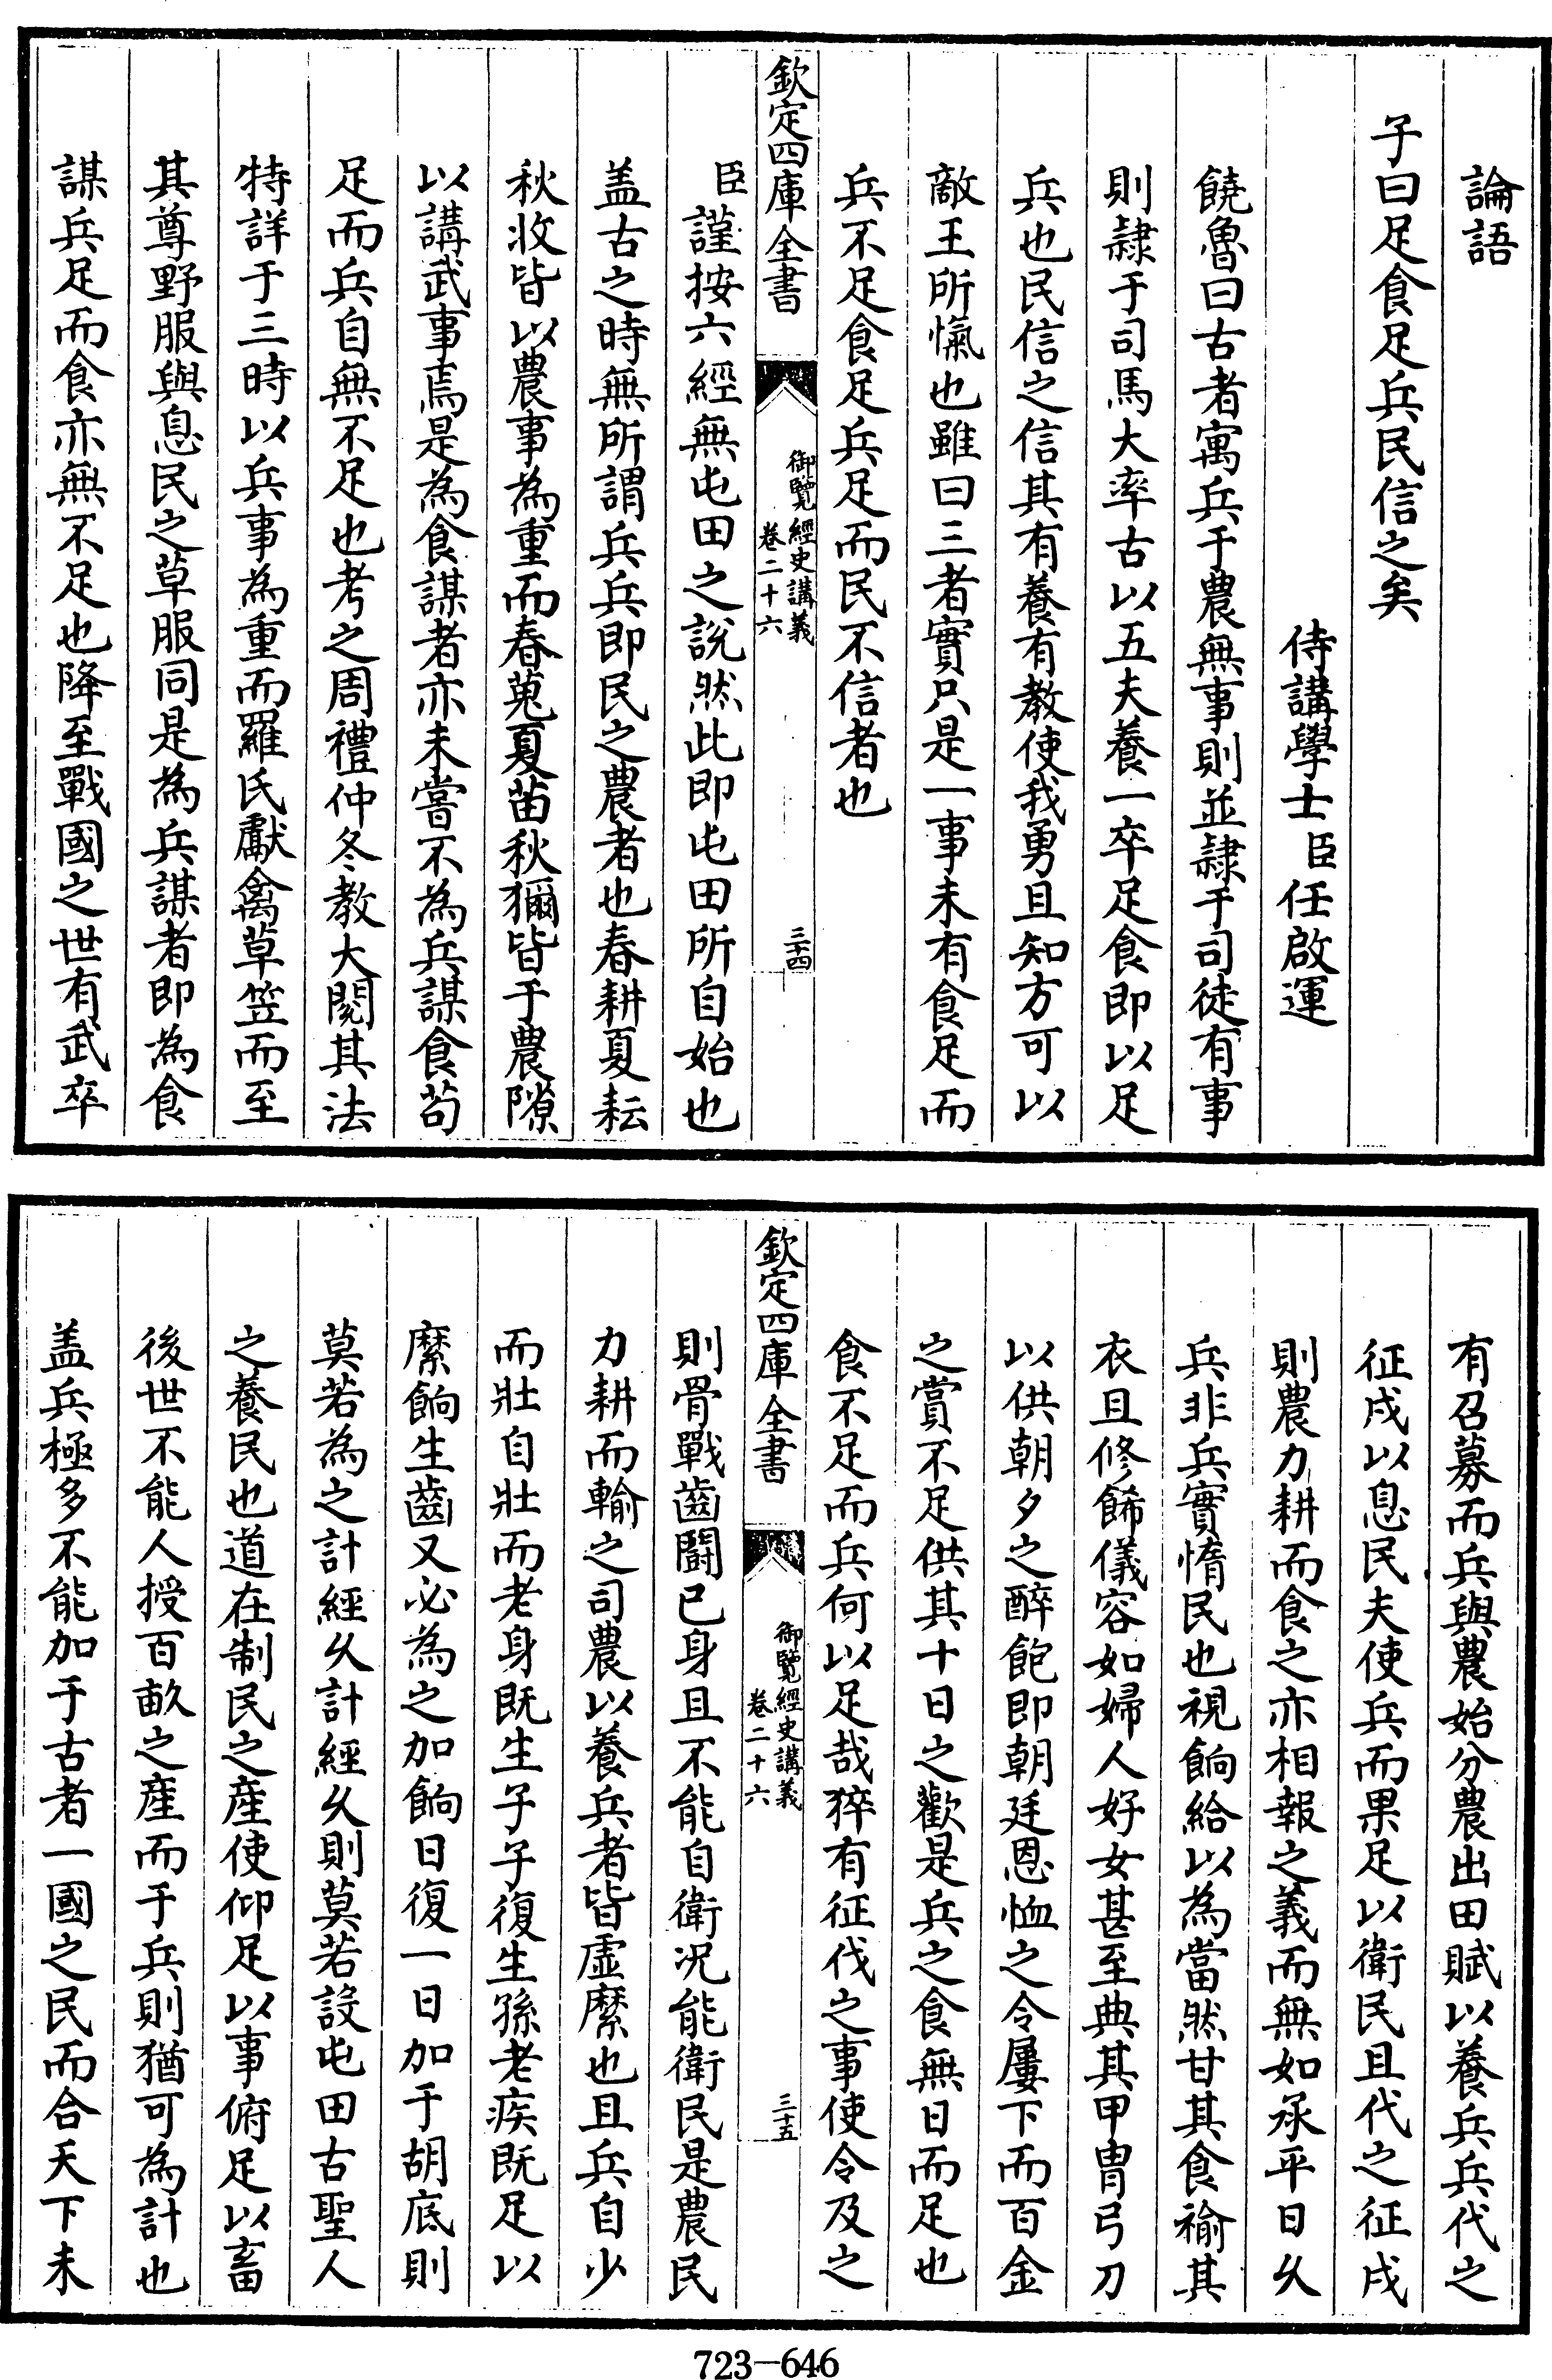 論語
子曰足食足兵民信之矣
侍講學士臣任啟運
饒魯曰古者寓兵于農無事則並隷于司徒有事
則隷于司馬大率古以五夫養一卒足食即以足
兵也民信之信其有養有教使我勇且知方可以
敵王所愾也雖曰三者實只是一事未有食足而
兵不足食足兵足而民不信者也
欽定四庫全書
御覽經史講義
卷二十六
三十四
臣謹按六經無屯田之說然此即屯田所自始也
盖古之時無所謂兵兵即民之農者也春耕夏耘
秋收皆以農事為重而春蒐夏苗秋獮皆于農隙
以講武事焉是為食謀者亦未嘗不為兵謀食茍
足而兵自無不足也考之周禮仲冬教大閱其法
特詳于三時以兵事為重而羅氏獻禽草笠而至
其尊野服與息民之草服同是為兵謀者即為食
謀兵足而食亦無不足也降至戰國之世有武卒
有召募而兵與農始分農出田賦以養兵兵代之
征戍以息民夫使兵而果足以衛民且代之征戍
則農力耕而食之亦相報之義而無如承平日乆
兵非兵實惰民也視餉給以為當然甘其食褕其
衣且修餙儀容如婦人好女甚至典其甲胄弓刀
以供朝夕之醉飽即朝廷恩恤之令屢下而百金
之賞不足供其十日之歡是兵之食無日而足也
食不足而兵何以足哉猝有征伐之事使令及之
欽定四庫全書
御覽經史講義
卷二十六
三十五
則骨戰齒鬭已身且不能自衛况能衛民是農民
力耕而輸之司農以養兵者皆虛縻也且兵自少
而壯自壯而老身既生子子復生孫老疾既足以
縻餉生齒又必為之加餉日復一日加于胡底則
莫若為之計經乆計經乆則莫若設屯田古聖人
之養民也道在制民之産使仰足以事俯足以畜
後世不能人授百畝之産而于兵則猶可為計也
盖兵極多不能加于古者一國之民而合天下未
723-646